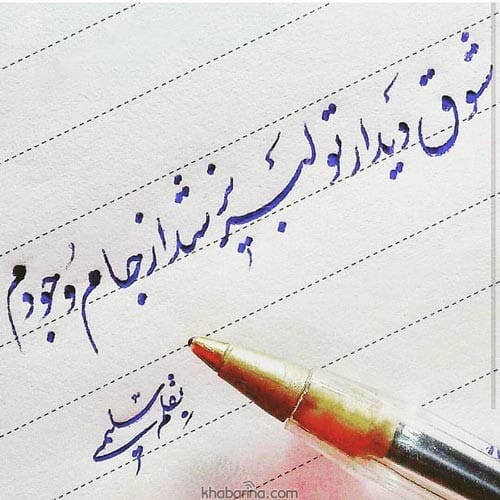 شوق دیدار تو لبریز شد از جام وجودم
بقلم سلیمی
khabarina.com